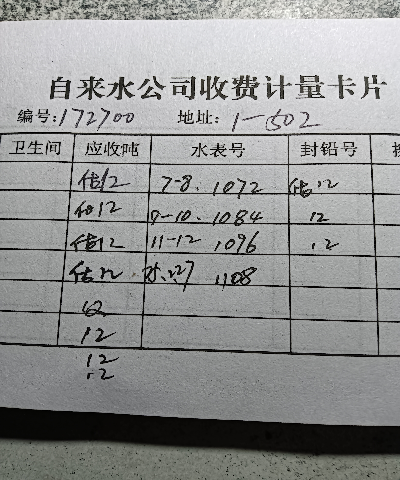 自来水公司收费计量卡片
编号:172700 地址: 1-502
卫生间 应收吨 水表号 封铅号
估12 7-8. 1072 估12
估12 9-10. 1084 12
估12 11-12 1096 12
估12 1108
12
12
12